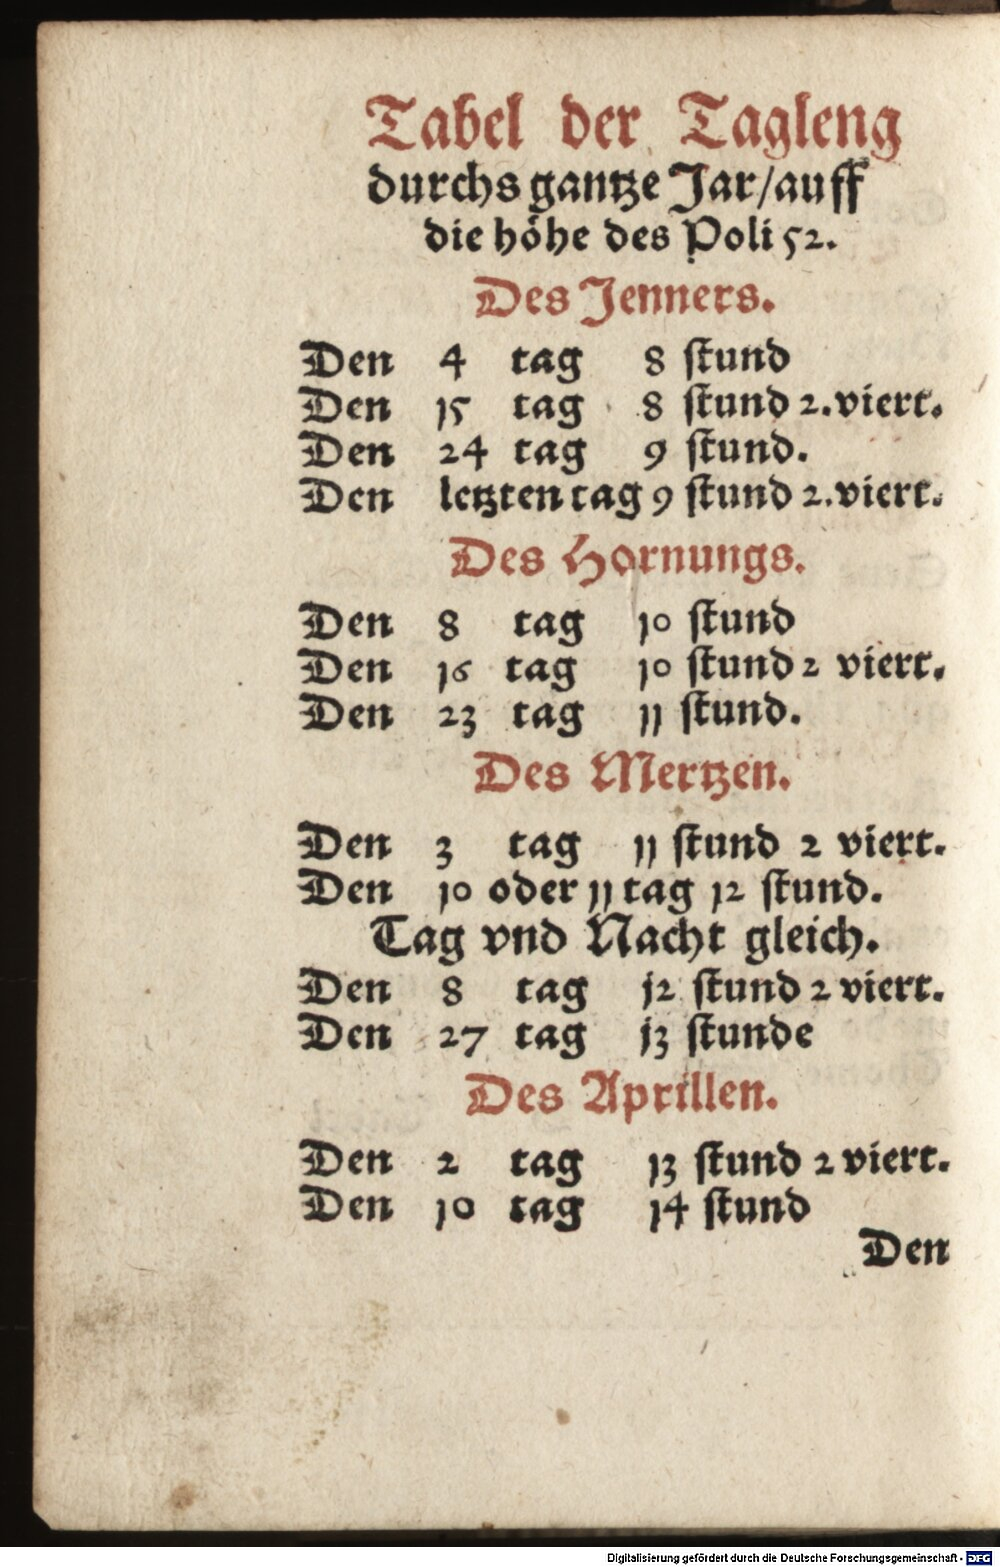 Tabel der Tagleng
durchs gantze Jar/auff
die höhe des Poli 52.
Des Jenners.
Den 4 tag 8 stund
Den 15 tag 8 stund 2. viert.
Den 24 tag 9 stund.
Den letzten tag 9 stund 2. viert.
Des Hornungs.
Den 8 tag 10 stund
Den 16 tag 10 stund 2 viert.
Den 23 tag 11 stund.
Des Mertzen.
Den 3 tag 11 stund 2 viert.
Den 10 oder 11 tag 12 stund.
Tag vnd Nacht gleich.
Den 8 tag 12 stund 2 viert.
Den 27 tag 13 stunde
Des Aprillen.
Den 2 tag 13 stund 2 viert.
Den 10 tag 14 stund
Den
Digitalisierung gefördert durch die Deutsche Forschungsgemeinschaft - DFG